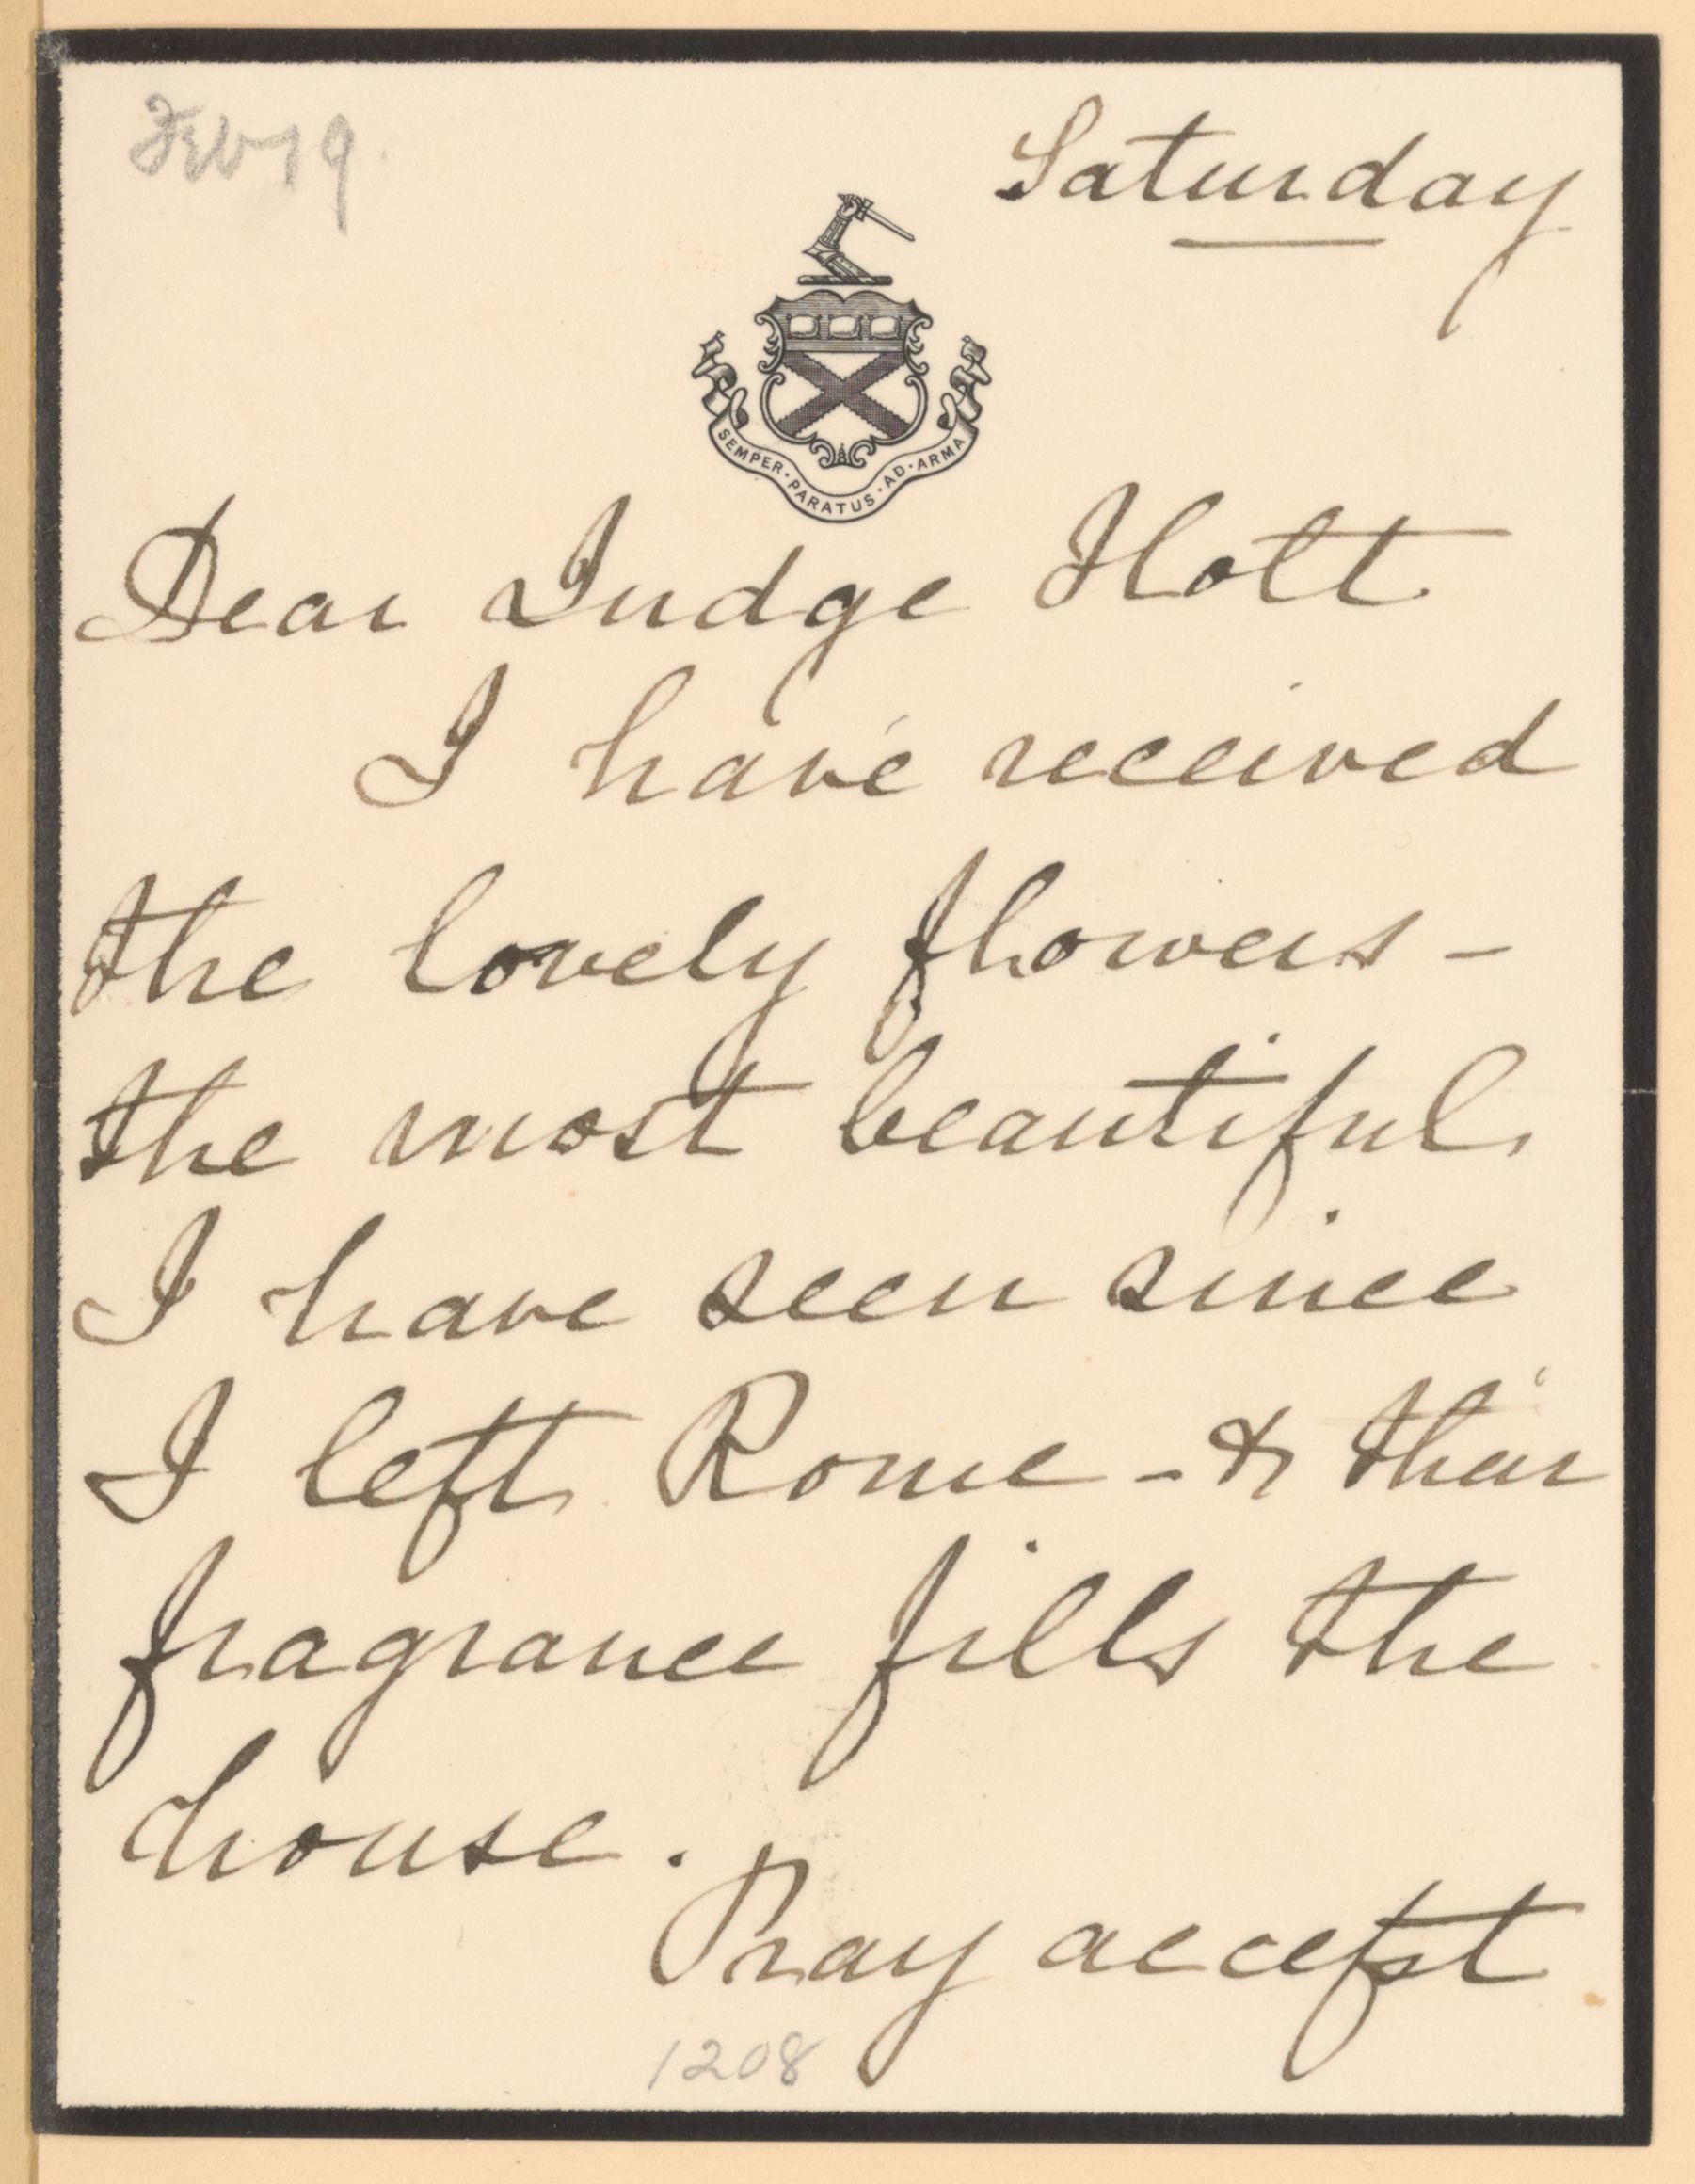 Feb 19.
Saturday
SEMPER · PARATUS · AD · ARMA
Dear Judge Holt
I have received
the lovely flowers -
the most beautiful
I have seen since
I left Rome - & their
fragrance fills the
house.
Pray accept
1208